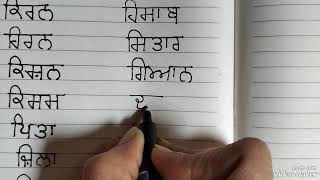 ਕਿਰਨ
ਹਿਰਨ
ਕਿਸ਼ਨ
ਕਿਸਮ
ਪਿਤਾ
ਜ਼ਿਲਾ
ਹਿਸਾਬ
ਸਿਤਾਰ
ਗਿਆਨ